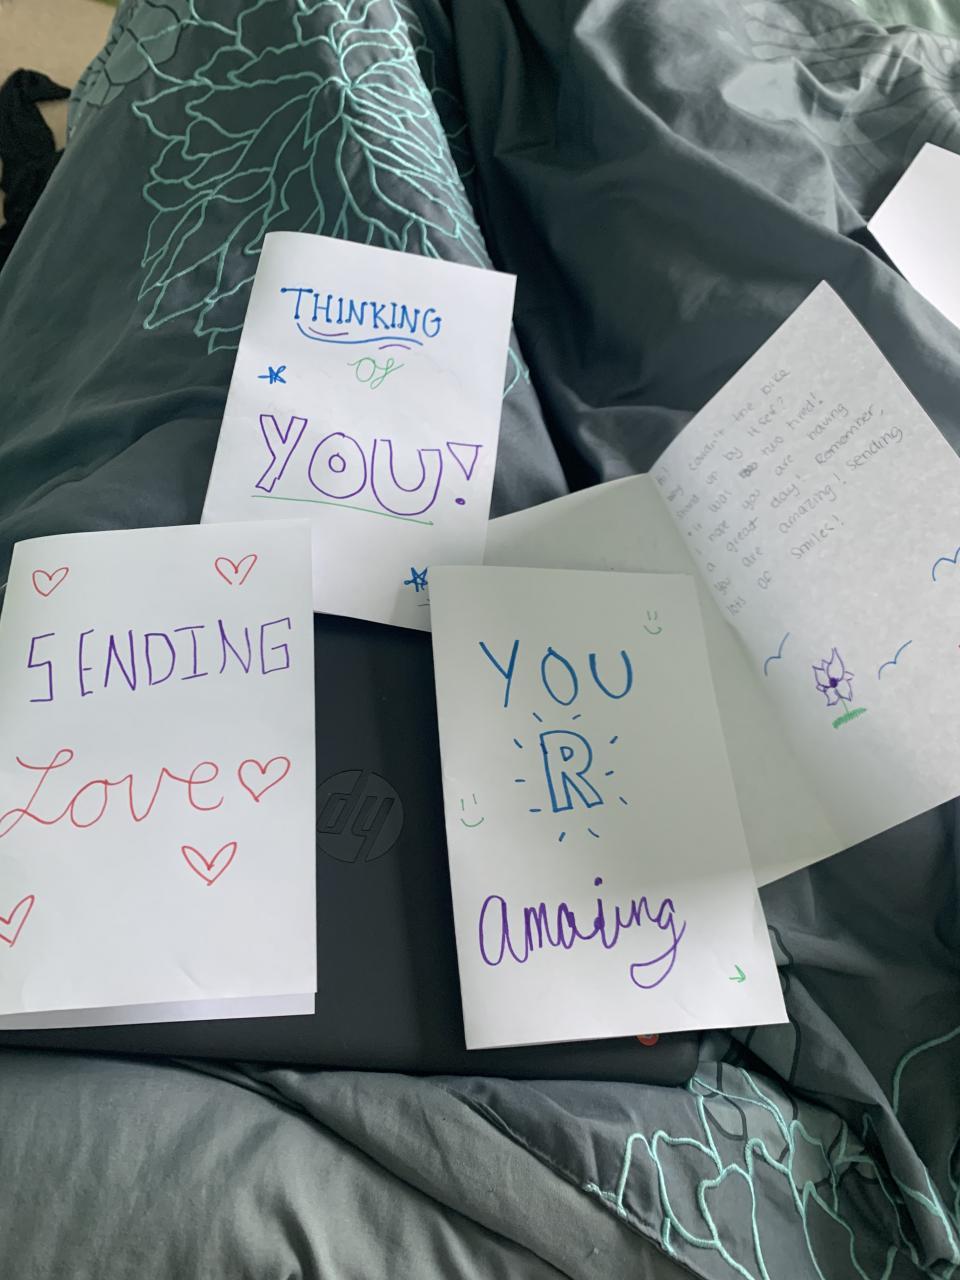 THINKING
OF
YOU!
SENDING
Love
YOU
R
amazing
hp
Hi!
Why couldn't the bike
stand up by itself?
it was two tired!
I hope you are having
a great day! Remember,
you are amazing! sending
lots of smiles!